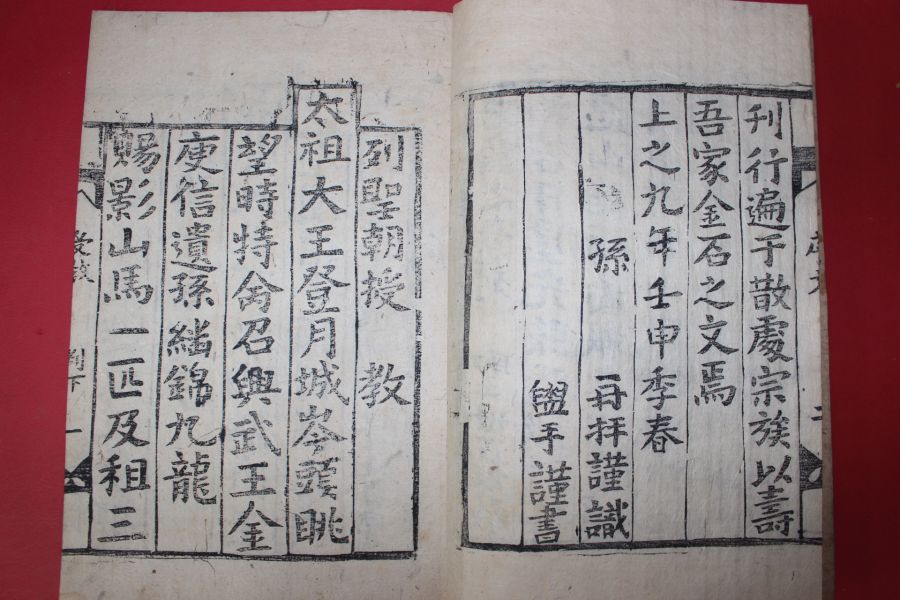 刊行遍于散處宗族以壽
吾家金石之文焉
上之九年壬申季春
孫 再拝謹識
盥手謹書
列聖朝授 教
太祖大王登月城岑頭眺
望時特命召興武王金
庾信遺孫繼錦九龍
賜影山馬一匹及租三